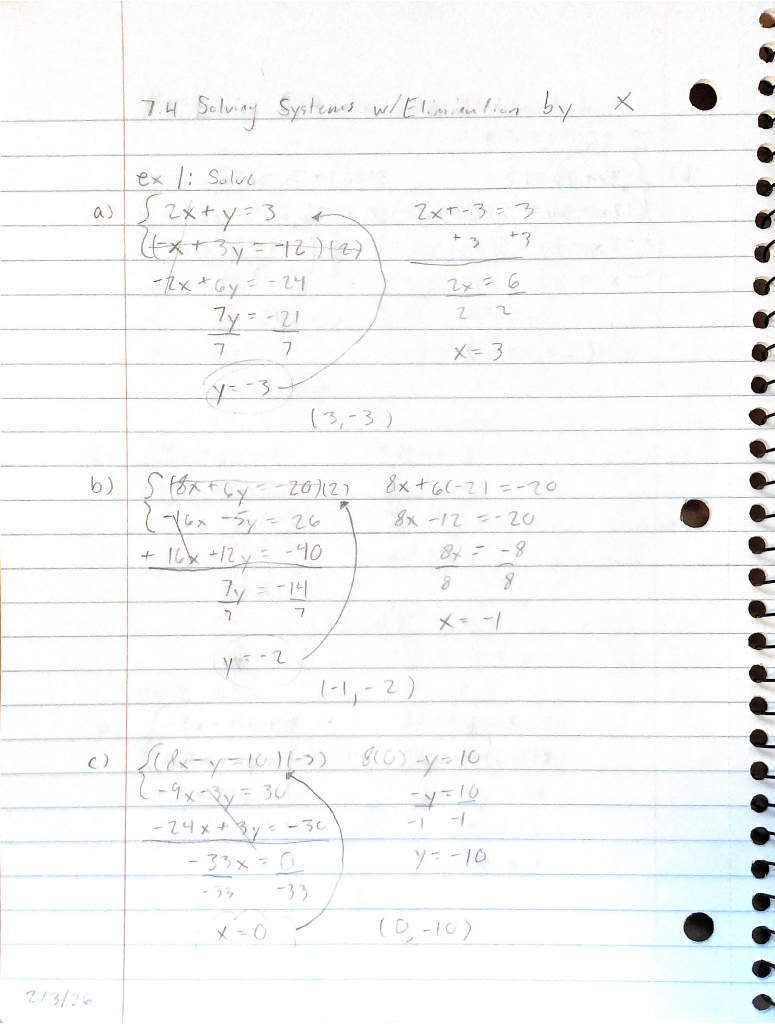 7.4 Solving Systems w/Elimination by X
ex 1: Solve
a) { 2x + y = 3
(-x + 3y = -12)(2)
-2x + 6y = -24
7y = -21
7 7
y = -3
2x + -3 = 3
+3 +3
2x = 6
2 2
x = 3
(3, -3)
b) { (8x + 6y = -20)(2)
-16x - 5y = 26
+ 16x + 12y = -40
7y = -14
7 7
y = -2
8x + 6(-2) = -20
8x - 12 = -20
8x = -8
8 8
x = -1
(-1, -2)
c) { (8x - y = 10)(-3)
-9x - 3y = 30
-24x + 3y = -30
-33x = 0
-33 -33
x = 0
8(0) - y = 10
-y = 10
-1 -1
y = -10
(0, -10)
2/3/26